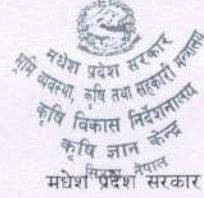 मधेश प्रदेश सरकार
भूमि व्यवस्था, कृषि तथा सहकारी मन्त्रालय
कृषि विकास निर्देशनालय
कृषि ज्ञान केन्द्र
नेपाल
मधेश प्रदेश सरकार